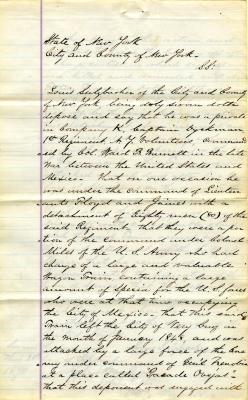 State of New York
City and County of New York.
SS:
Louis Salzbacher of the City and County
of New York being duly sworn doth
depose and say that he was a private
in Company K, Captain Dyckman,
1st Regiment N.Y. Volunteers, command
ed by Col. Ward B. Burnett in the late
War between the United States and
Mexico. That on one occasion he
was under the command of Lieuten
ants Floyd and Jaines with a
detachment of Eighty men (80) of the
said Regiment that they were a por
tion of the command under Colonel
Miles of the U.S. Army who had
charge of a large and valuable
Wagon Train containing a large
amount of specie for the U.S. forces
who were at that time occupying
the City of Mexico, that this said
Train left the City of Vera Cruz in
the month of January 1848, and was
attacked by a large force of the ene
my under command of Genl.
at a place called
that this deponent was engaged with